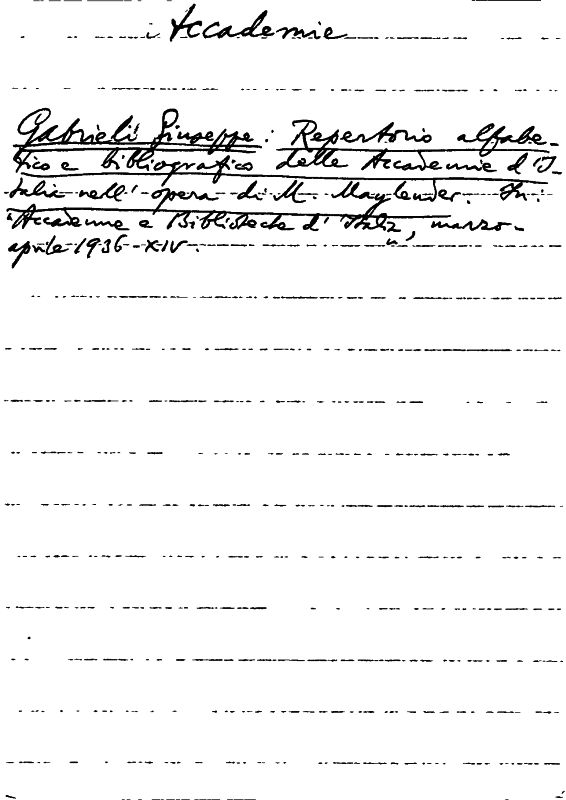 Accademie
Gabrieli Giuseppe: Repertorio alfabe-
tico e bibliografico delle Accademie d'I-
talia nell'opera di M. Maylender. In:
"Accademie e Biblioteche d'Italia", marzo-
aprile 1936-XIV.